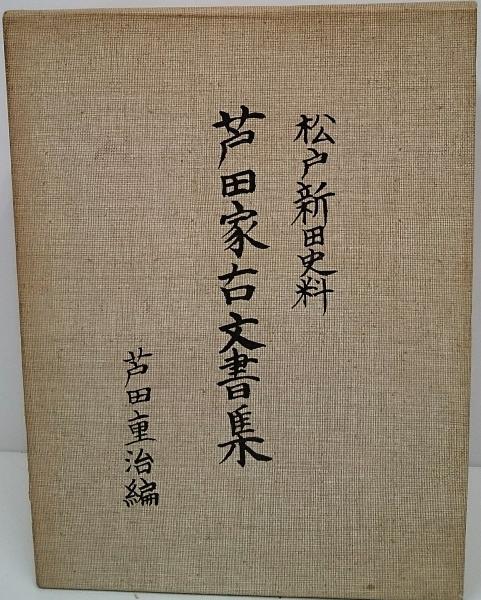 松戸新田史料
芦田家古文書集
芦田重治編